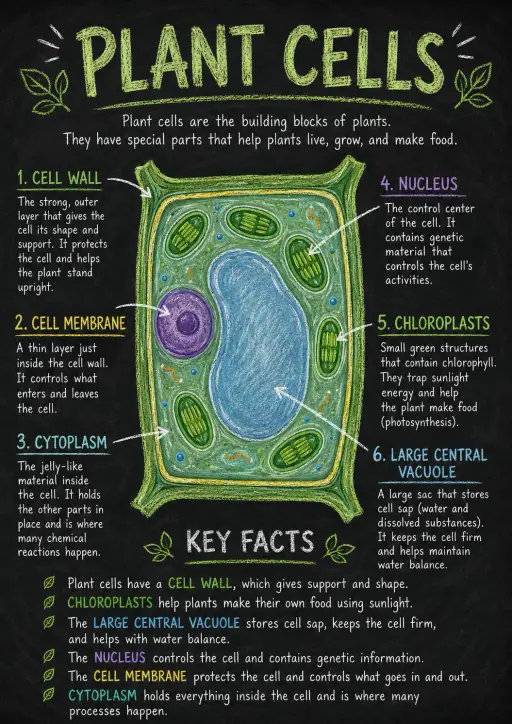 PLANT CELLS
Plant cells are the building blocks of plants.
They have special parts that help plants live, grow, and make food.
1. CELL WALL
The strong, outer
layer that gives the
cell its shape and
support. It protects
the cell and helps
the plant stand
upright.
2. CELL MEMBRANE
A thin layer just
inside the cell wall.
It controls what
enters and leaves
the cell.
3. CYTOPLASM
The jelly-like
material inside
the cell. It holds
the other parts in
place and is where
many chemical
reactions happen.
4. NUCLEUS
The control center
of the cell. It
contains genetic
material that
controls the cell's
activities.
5. CHLOROPLASTS
Small green structures
that contain chlorophyll.
They trap sunlight
energy and help
the plant make food
(photosynthesis).
6. LARGE CENTRAL
VACUOLE
A large sac that stores
cell sap (water and
dissolved substances).
It keeps the cell firm
and helps maintain
water balance.
KEY FACTS
Plant cells have a CELL WALL, which gives support and shape.
CHLOROPLASTS help plants make their own food using sunlight.
The LARGE CENTRAL VACUOLE stores cell sap, keeps the cell firm,
and helps with water balance.
The NUCLEUS controls the cell and contains genetic information.
The CELL MEMBRANE protects the cell and controls what goes in and out.
CYTOPLASM holds everything inside the cell and is where many
processes happen.